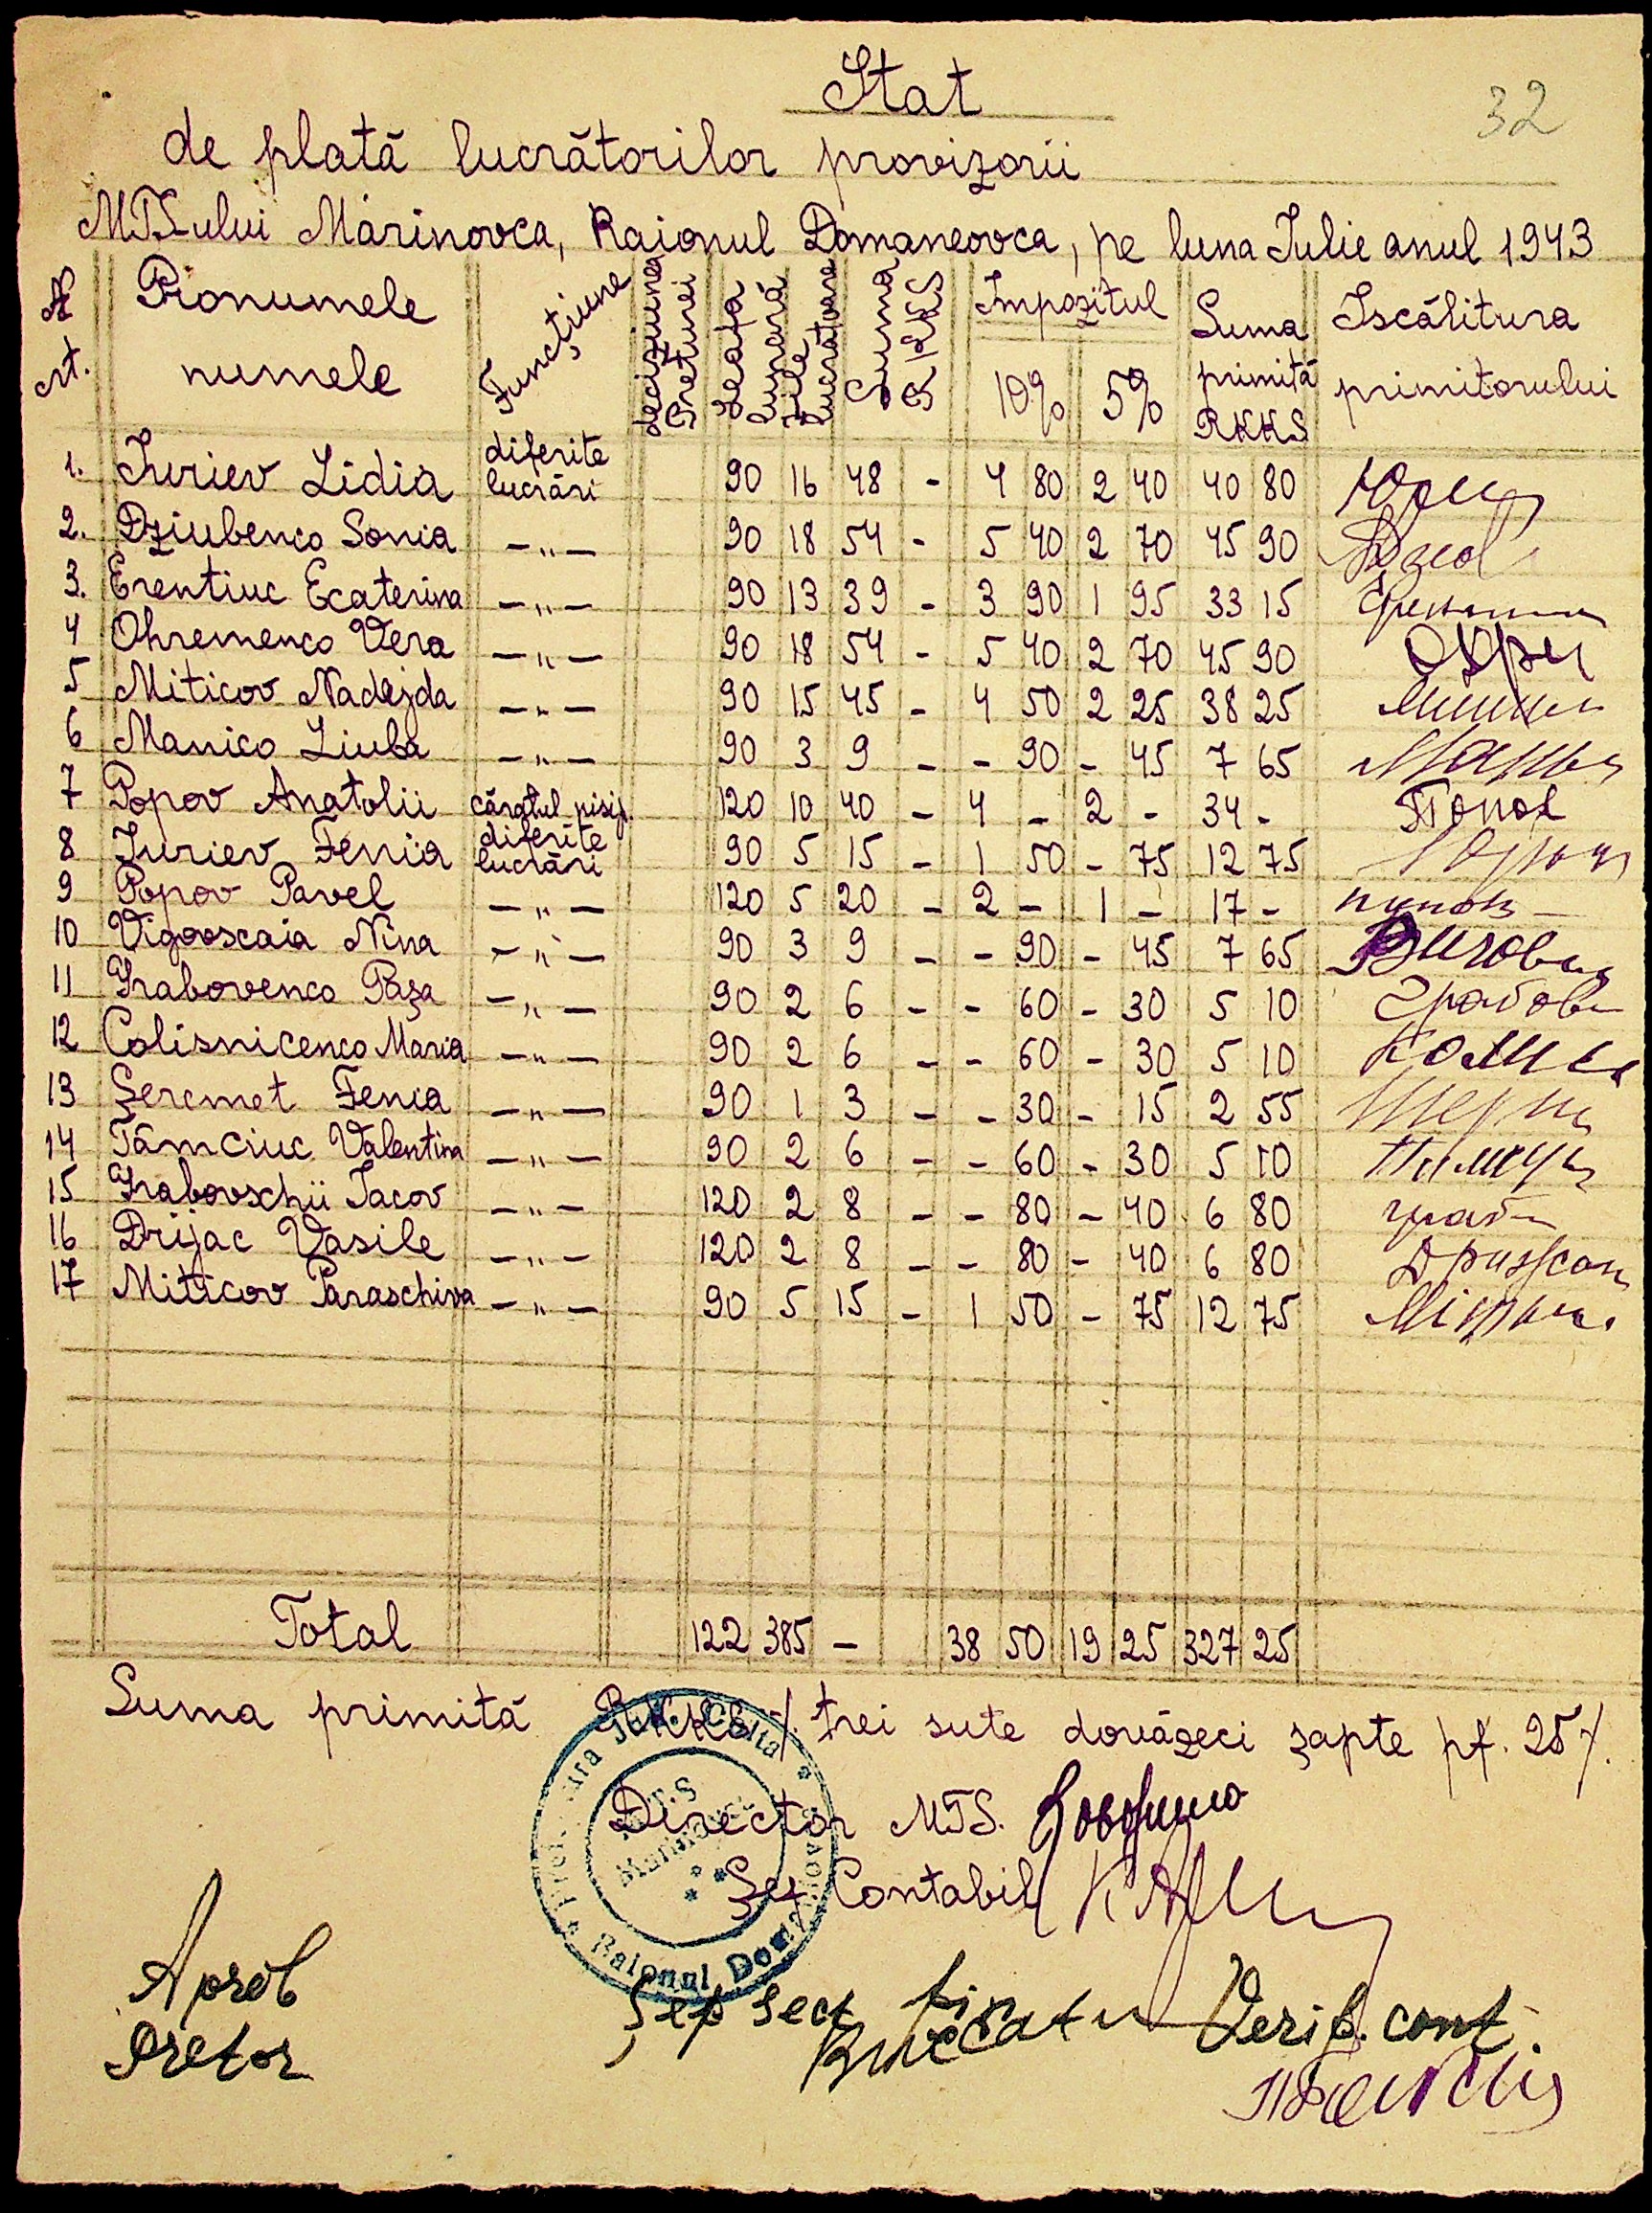 32
Stat
de plată lucrătorilor provizorii
MTS-ului Marinovca, Raionul Domaneovca, pe luna Iulie anul 1943
№ crt. Pronumele numele Funcțiune deciziunea Preturei Leafa lunară zile lucrătoare Suma RKKS Impozitul 10% 5% Suma primită RKKS Iscălitura primitorului
1. Iuriev Lidia diferite lucrări 90 16 48 - 4 80 2 40 40 80
2. Dziubenco Sonia —„— 90 18 54 - 5 40 2 70 45 90
3. Erentiuc Ecaterina —„— 90 13 39 - 3 90 1 95 33 15
4 Ohremenco Vera —„— 90 18 54 - 5 40 2 70 45 90
5 Miticov Nadejda —„— 90 15 45 - 4 50 2 25 38 25
6 Manico Liuba —„— 90 3 9 - - 90 - 45 7 65
7 Popov Anatolii 120 10 40 - 4 - 2 - 34 - Попов
8 Iuriev Fenia diferite lucrări 90 5 15 - 1 50 - 75 12 75
9 Popov Pavel —„— 120 5 20 - 2 - 1 - 17 -
10 Vigovscaia Nina —„— 90 3 9 - - 90 - 45 7 65
11 Grabovenco Pașa —„— 90 2 6 - - 60 - 30 5 10
12 Colisnicenco Maria —„— 90 2 6 - - 60 - 30 5 10
13 Șeremet Fenia —„— 90 1 3 - - 30 - 15 2 55
14 Tâmciuc Valentina —„— 90 2 6 - - 60 - 30 5 10
15 Grabovschii Iacov —„— 120 2 8 - - 80 - 40 6 80
16 Drijac Vasile —„— 120 2 8 - - 80 - 40 6 80
17 Miticov Paraschiva —„— 90 5 15 - 1 50 - 75 12 75
Total 122 385 - 38 50 19 25 327 25
Suma primită RKKS /. trei sute douăzeci șapte pf. 25 /.
Director MTS.
Șef Contabil
M.T.S Marinovca
Raionul Doma
Aprob
Pretor
Șef sect financiar
Verif. cont.